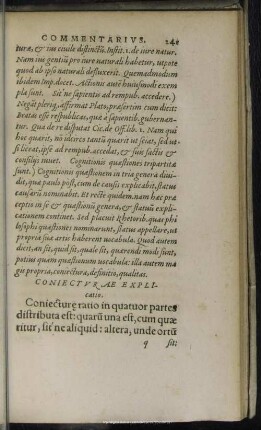 COMMENTARIVS. 241
turæ, & ius ciuile distinctũ. Instit. 1. de iure natur.
Nam ius gentiũ pro iure naturali habetur, utpote
quod ab ipso naturali defluxerit. Quemadmodum
ibidem Imp. docet. Actionis autẽ huiusmodi exem
pla sunt. Sit' ne sapientis ad rempub. accedere.)
Negãt pleriq; affirmat Plato, præsertim cum dicit:
Beatas esse respublicas, quæ à sapientib. gubernan-
tur. Qua de re disputat Cic. de Off. lib. 1. Nam qui
hoc quærit, nõ aduerso tantũ quærit ut sciat, sed ut
si liceat, ipse ad rempub. accedat, & suis factis &
consilijs iuuet. Cognitionis quæstiones tripartitæ
sunt.) Cognitionis quæstionem in tria genera diui-
dit, quæ paulò pòst, cum de causis explicabit, status
causarũ nominabit. Et recte quidem, nam hæc præ
cepta in se & quæstionũ genera, & statuũ expli-
cationem continet. Sed placuit Rhetorib. quas phi
losophi quæstiones nominarunt, status appellare, ut
propria suæ artis haberent uocabula. Quod autem
dicit, an sit, quid sit, quale sit, quærendi modi sunt,
potius quàm quæstionum uocabula: illa autem ma
gis propria, coniectura, definitio, qualitas.
CONIECTVRAE EXPLI-
catio.
Coniecturę ratio in quatuor partes
distributa est: quarũ una est, cum quæ
ritur, sit' ne aliquid: altera, unde ortũ
q sit: